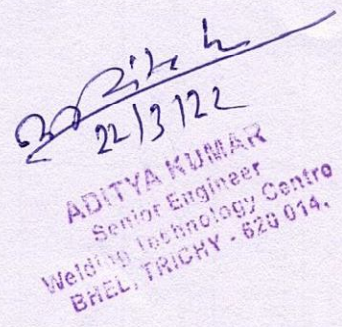 22/3/22
ADITYA KUMAR
Senior Engineer
Welding Technology Centre
BHEL, TRICHY - 620 014.